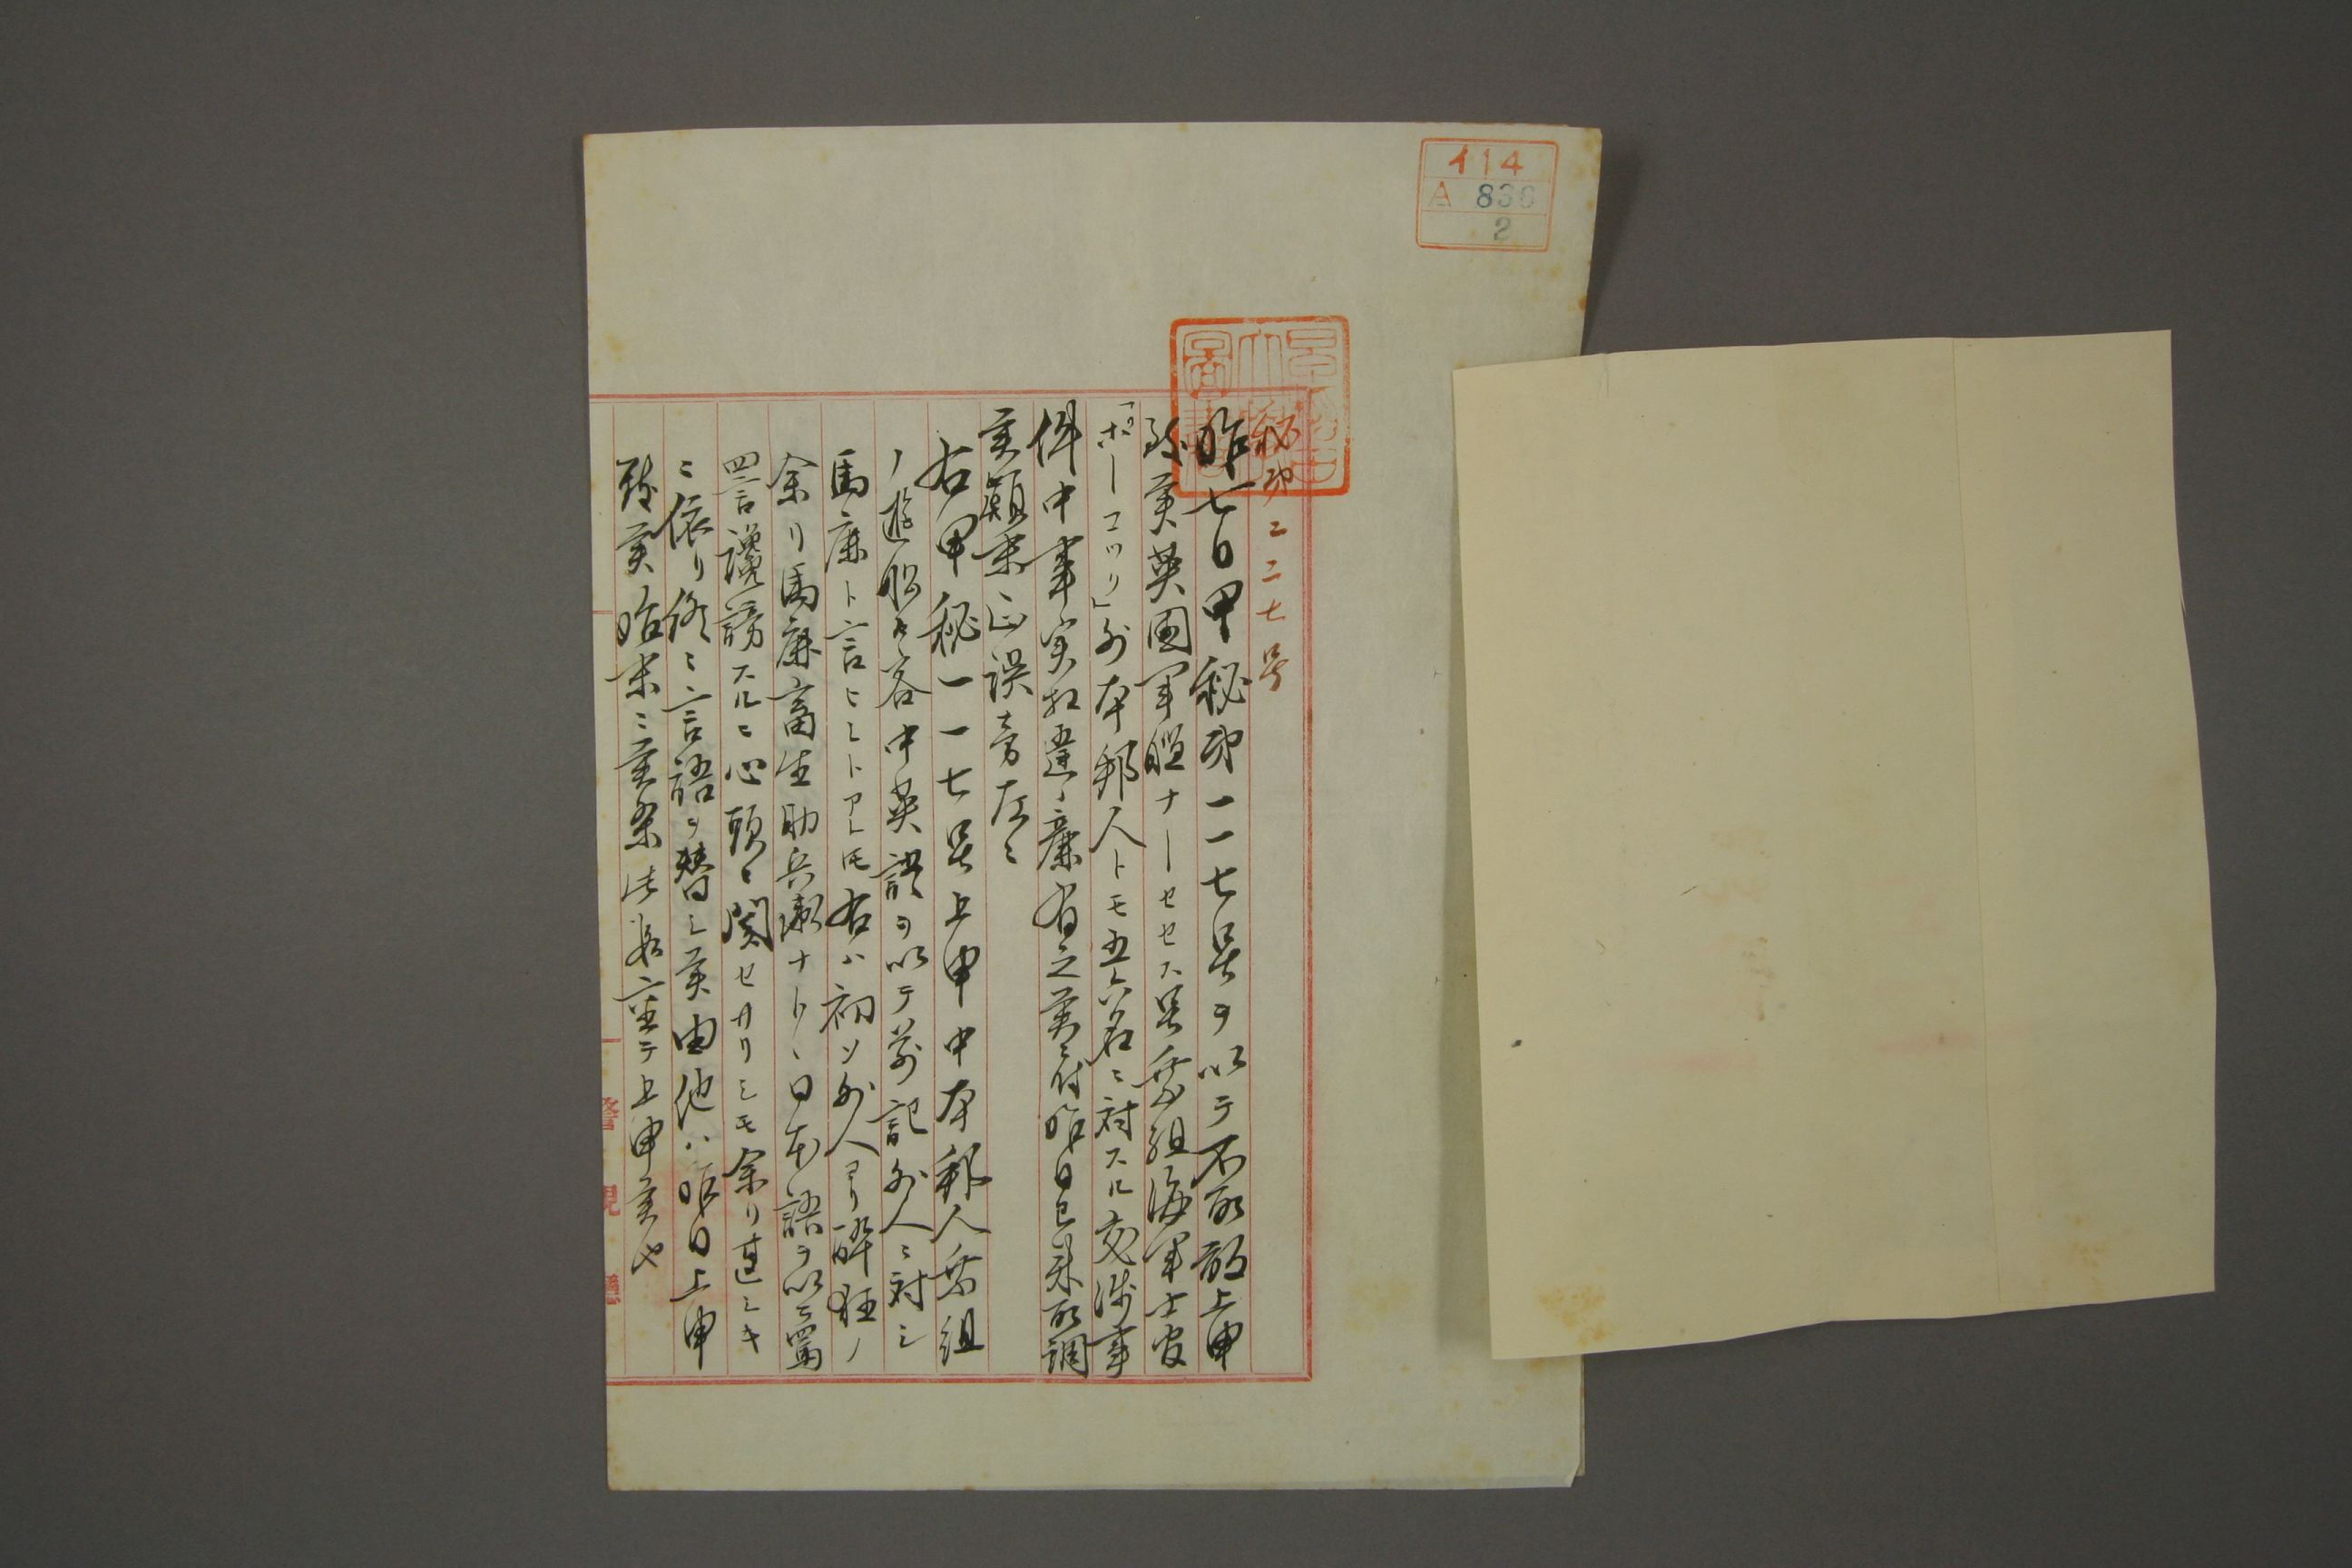 イ14
A 836
2
秘第二二七号
昨七日甲秘第一一七号ヲ以テ不取敢上申
致候英国軍艦ナーセセス号乗組海軍士官
「ホーコツリ」外本邦人トモ五六名ニ対スル交渉事
件中事実相違ノ廉有之候ニ付昨日已来取調
候顛末正誤旁左ニ
右甲秘一一七号上申中本邦人乗組
ノ遊船客中英語ヲ以テ前記外人ニ対シ
馬鹿ト言ヒシトアレトモ右ハ初メ外人ヨリ酔狂ノ
余リ馬鹿畜生助兵衛ナト、日本語ヲ以テ罵
詈讒謗スルニ心頭ニ関セサリシモ余リ甚シキ
ニ依リ終ニ言語ヲ替シ候由他ハ昨日上申
致候始末ニ候条此段重テ上申候也
警視庁